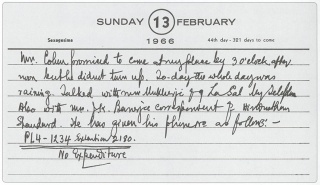 SUNDAY 13 FEBRUARY
Sexagesima 1966 44th day - 321 days to come
Mr. Cohen promised to come at my place by 3 o'clock after
noon but he didnt turn up. To-day the whole day was
raining. Talked with Mukherjee of La Sal by
Also with Mr. J.K. Banerjee correspondent to Hindusthan
Standard. He has given his phone no as follows:-
PL4-1234 Extention 2180.
No Expenditure